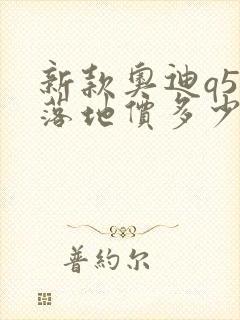 新款奧迪q5
落地價多少
普約尔